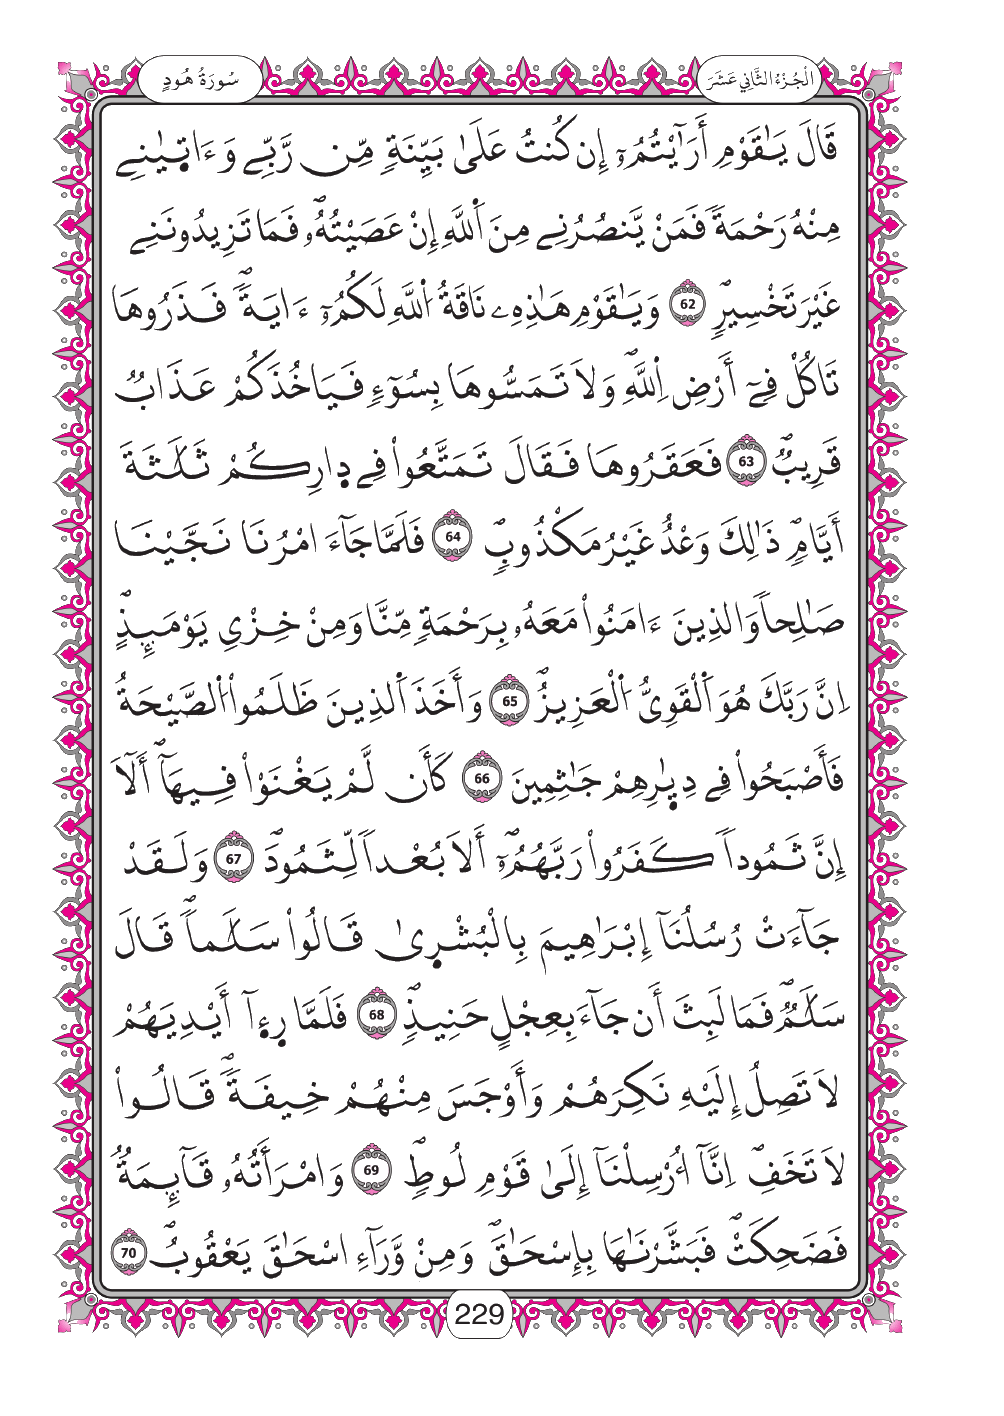 الْجُزْءُ الثَّانِي عَشَرَ
سُورَةُ هُودٍ
قَالَ يَٰقَوْمِ أَرَٰٓيْتُمُۥٓ إِن كُنتُ عَلَىٰ بَيِّنَةٍ مِّن رَّبِّے وَءَاتٜيٰنِے
مِنْهُ رَحْمَةٗ فَمَنْ يَّنصُرُنِے مِنَ اَ۬للَّهِ إِنْ عَصَيْتُهُۥۖ فَمَا تَزِيدُونَنِے
غَيْرَ تَخْسِيرٖۖ 62 وَيَٰقَوْمِ هَٰذِهِۦ نَاقَةُ اُ۬للَّهِ لَكُمُۥٓ ءَايَةٗۖ فَذَرُوهَا
تَاكُلْ فِےٓ أَرْضِ اِ۬للَّهِۖ وَلَا تَمَسُّوهَا بِسُوٓءٖ فَيَاخُذَكُمْ عَذَابٞ
قَرِيبٞۖ 63 فَعَقَرُوهَا فَقَالَ تَمَتَّعُواْ فِے دِارِكُمْ ثَلَٰثَةَ
أَيَّامٖۖ ذَٰلِكَ وَعْدٌ غَيْرُ مَكْذُوبٖۖ 64 فَلَمَّا جَآءَ امْرُنَا نَجَّيْنَا
صَٰلِحاٗ وَالذِينَ ءَامَنُواْ مَعَهُۥ بِرَحْمَةٖ مِّنَّا وَمِنْ خِزْيِ يَوْمَئِذٍۖ
اِنَّ رَبَّكَ هُوَ اَ۬لْقَوِيُّ اُ۬لْعَزِيزُۖ 65 وَأَخَذَ اَ۬لذِينَ ظَلَمُواْ اُ۬لصَّيْحَةُ
فَأَصْبَحُواْ فِے دِيٰ۪رِهِمْ جَٰثِمِينَ 66 كَأَن لَّمْ يَغْنَوْاْ فِيهَآۖ أَلَآ
إِنَّ ثَمُوداٗ كَفَرُواْ رَبَّهُمُۥٓۖ أَلَا بُعْداٗ لِّثَمُودَۖ 67 وَلَقَدْ
جَآءَتْ رُسُلُنَآ إِبْرَٰهِيمَ بِالْبُشْر۪يٰ قَالُواْ سَلَٰماٗۖ قَالَ
سَلَٰمٞۖ فَمَا لَبِثَ أَن جَآءَ بِعِجْلٍ حَنِيذٖۖ 68 فَلَمَّا ر۪ء۪آ أَيْدِيَهُمْ
لَا تَصِلُ إِلَيْهِ نَكِرَهُمْ وَأَوْجَسَ مِنْهُمْ خِيفَةٗۖ قَالُواْ
لَا تَخَفِۖ اِنَّآ أُرْسِلْنَآ إِلَىٰ قَوْمِ لُوطٖۖ 69 وَامْرَأَتُهُۥ قَآئِمَةٞ
فَضَحِكَتْۖ فَبَشَّرْنَٰهَا بِإِسْحَٰقَۖ وَمِنْ وَّرَآءِ اسْحَٰقَ يَعْقُوبُۖ 70
229